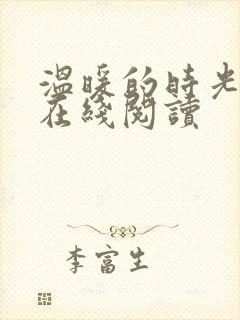 温暖的時光
在綫閱讀
李富生